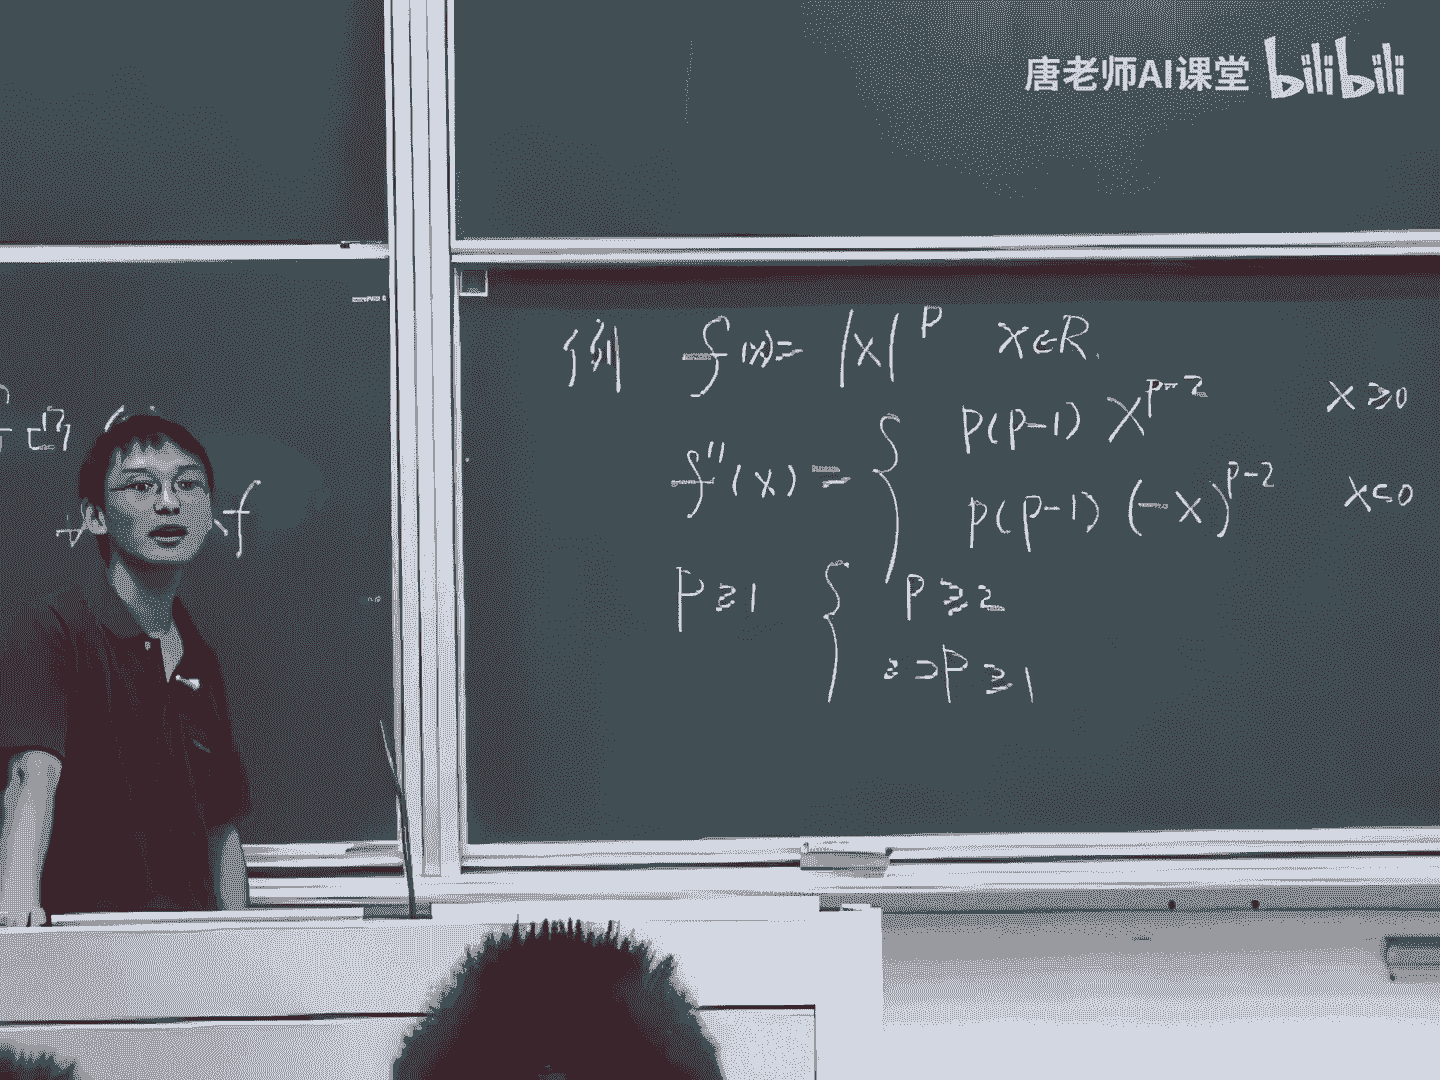 唐老师AI课堂 bilibili
例 f(x)= |x|^p x∈R.
f''(x) = { p(p-1) x^{p-2} x≥0
p(p-1) (-x)^{p-2} x<0
p≥1 { p≥2
2>p≥1
凸
f